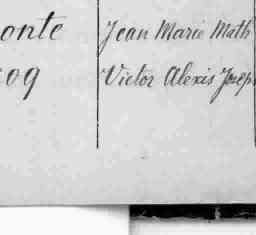 onte Jean Marie Math
09 Victor Alexis Josep